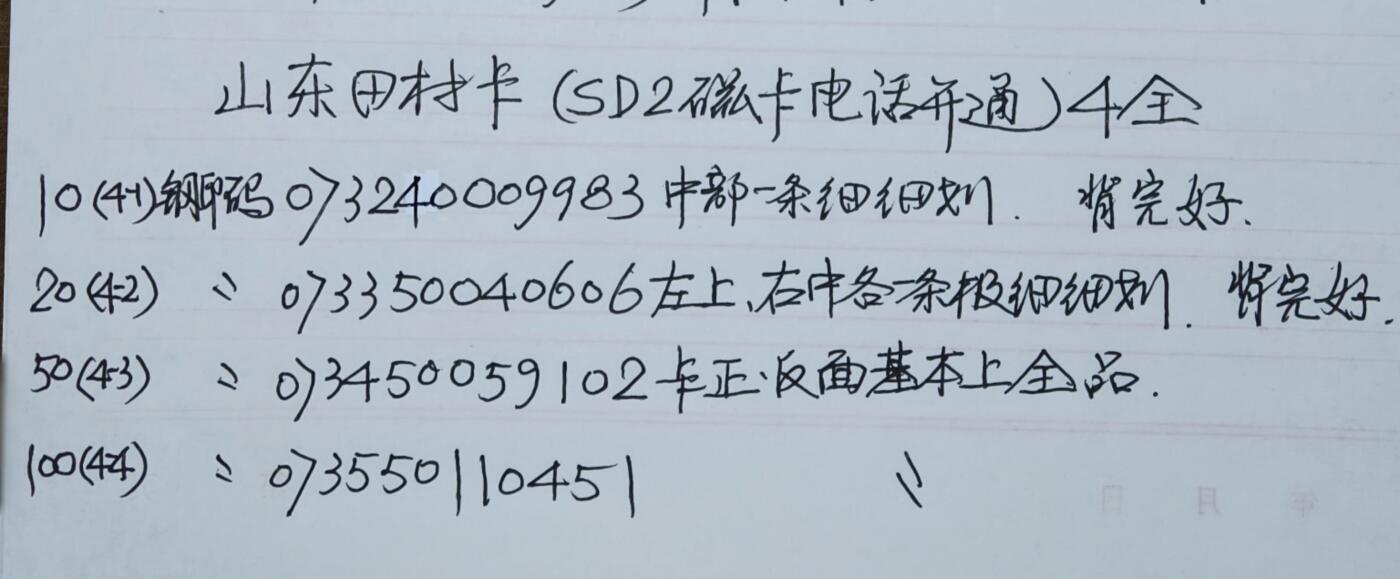 山东田村卡(SD2磁卡电话开通)4全
10(4-1)钢印码073240009983中部一条细细划. 背完好.
20(4-2) 〃 073350040606左上、右中各一条极细细划. 背完好.
50(4-3) 〃 073450059102卡正.反面基本上全品.
100(4-4) 〃 073550110451 〃
年 月 日